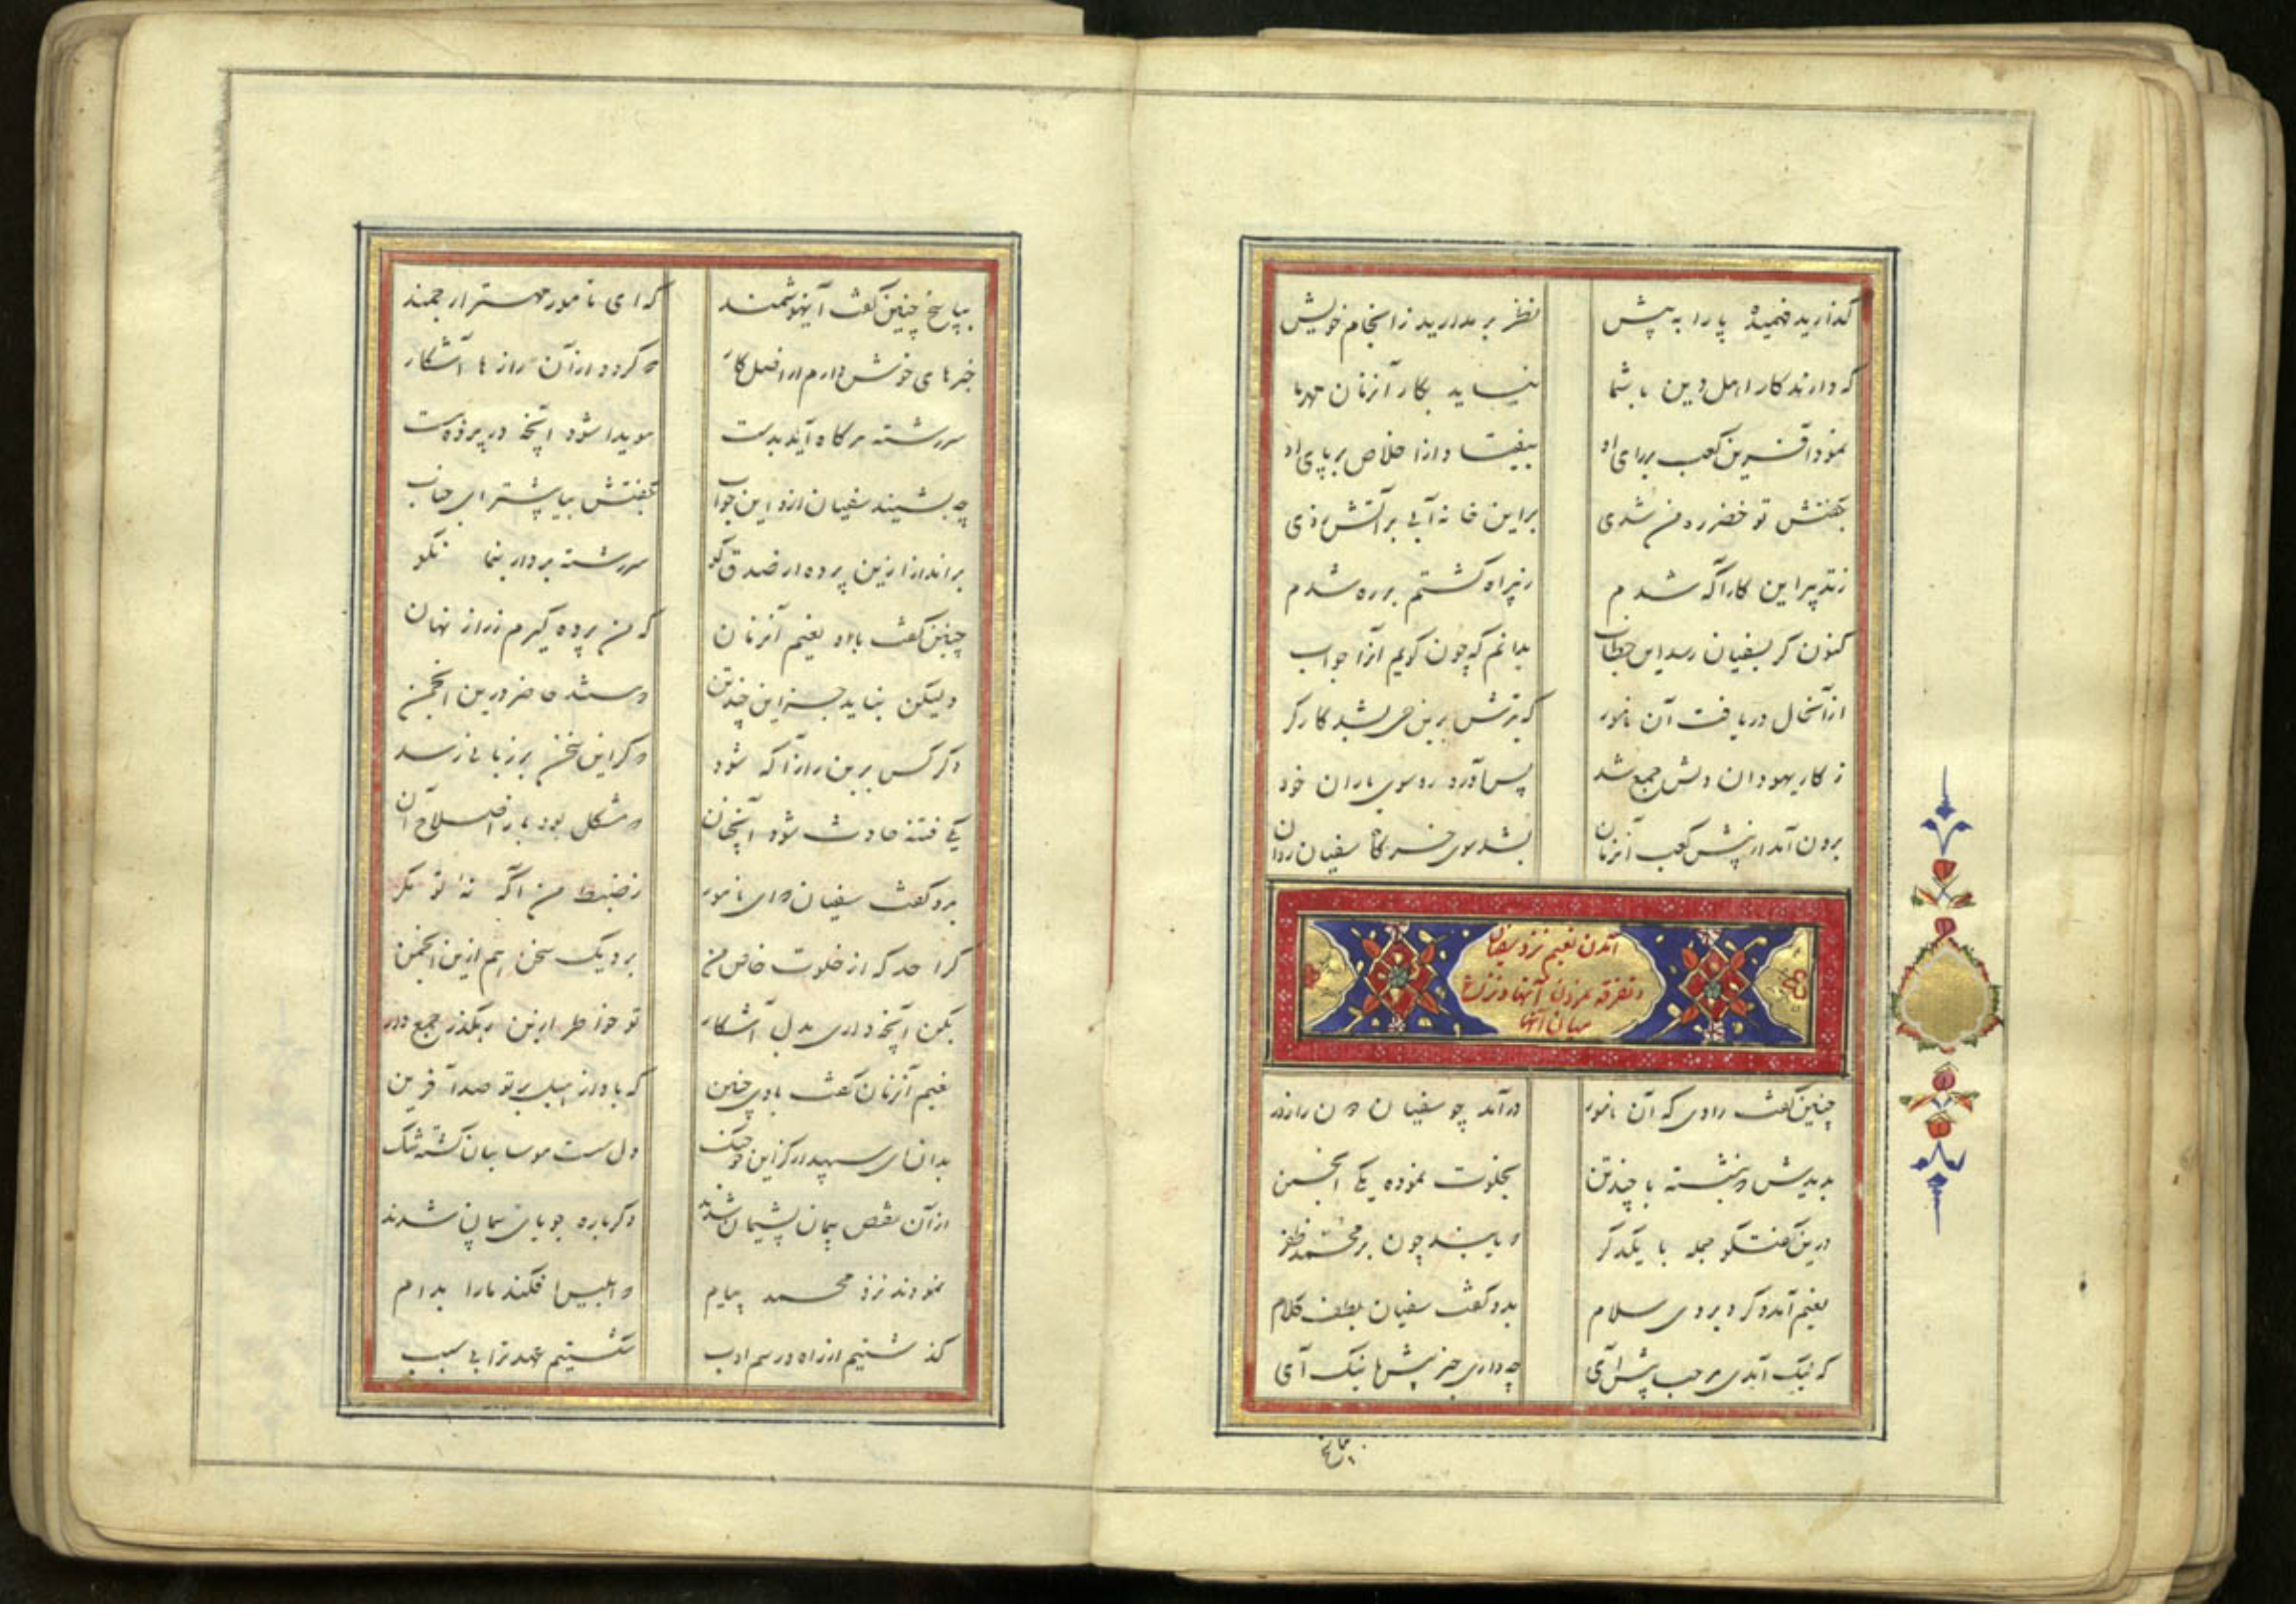 گذارید فهمیده پا را به پیش نظر بر مدارید ز انجام خویش
که دارند کار اهل دین با شما نیاید بکار آنزمان
نمود آفرین کعب بر رای او بیفتاد از اخلاص بر پای او
بگفتش تو خضر ره من شدی بر این خانه آبی بر آتش زدی
ز تدبیر این کار آگه شدم ز بیراه گشتم بره شدم
کنون گر بسفیان رسد این خطاب بدانم که چون گویم آنرا جواب
از آنحال دریافت آن نامور که بر
ز کار یهودان دلش جمع شد پس آورد رو سوی یاران خود
برون آمد از پیش کعب آنزمان بشد سوی سفیان روان
آمدن نعیم نزد سفیان
و تفرقه نمودن آنها و نزاع
میان آنها
چنین گفت راوی که آن نامور در آمد چو سفیان
بدیدش نشسته با چند تن بخلوت نموده یکی انجمن
درین گفتگو جمله با یکدگر یابند چون بر محمد ظفر
نعیم آمد و کرد بر وی سلام بدو گفت سفیان بلطف کلام
که نیک آمدی مرحبا پیش آی چه داری خبر پیش ما نیک آی
بپاسخ
بپاسخ چنین گفت آنهوشمند که ای نامور مهتر ارجمند
خبرهای خوش دارم از اصل کار گردد از آن رازها آشکار
سررشته هرگاه آید بدست هویدا شود آنچه در پرده است
چه بشنید سفیان ازو این جواب بگفتش بیا پیشتر ای جناب
برانداز ازین پرده از صدق گو سررشته بردار بنما نکو
چنین گفت با او نعیم آنزمان که من پرده گیرم ز راز نهان
ولیکن نباید جز این چند تن حاضر درین انجمن
دگر کس برین راز آگه شود گر این سخن بر زبانی رسد
یکی فتنه حادث شود آنچنان مشکل بود باز اصلاح آن
بدو گفت سفیان ای نامور ز ضبط من آگه نهٔ تو مگر
کرا حد که از خلوت خاص من برد یک سخن هم ازین انجمن
بکن آنچه داری بدل آشکار تو خاطر ازین رهگذر جمع دار
نعیم آنزمان گفت با وی چنین که بادا ز هبل بر تو صد آفرین
بدان ای سپهدار کز این دل سست موسائیان گشته تنگ
از آن نقض پیمان پشیمان شدند دگرباره جویای پیمان شدند
نمودند نزد محمد پیام ابلیس افکند ما را بدام
گذشتیم از راه و رسم ادب شکستیم عهد ترا بی سبب